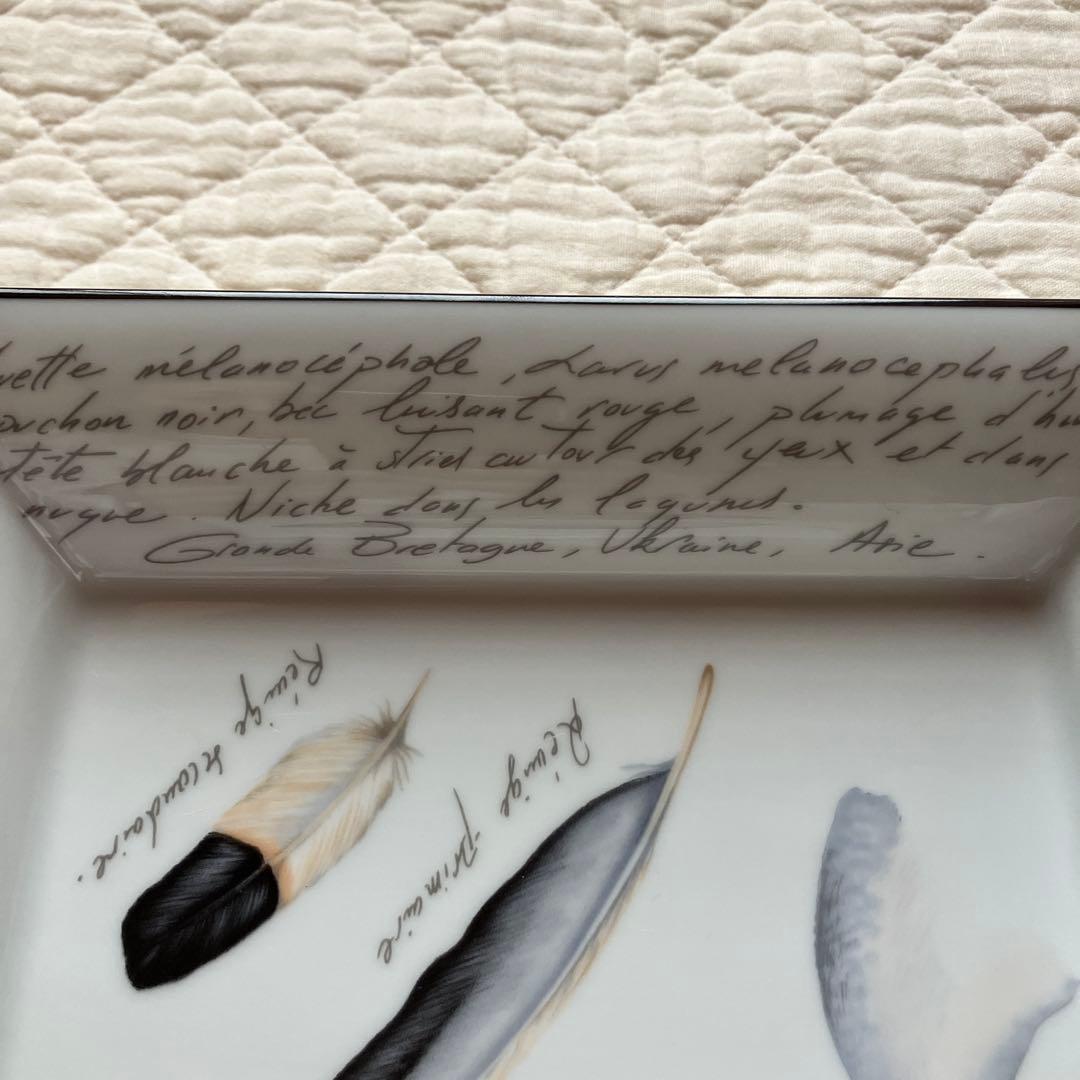 vette mélanocéphale, Larus melanocephalus,
ouchon noir, bec luisant rouge, plumage d'hi
tête blanche à stries autour des yeux et dans
nuque. Niche dans les lagunes.
Grande Bretagne, Ukraine, Asie.
Rémige secondaire.
Rémige primaire